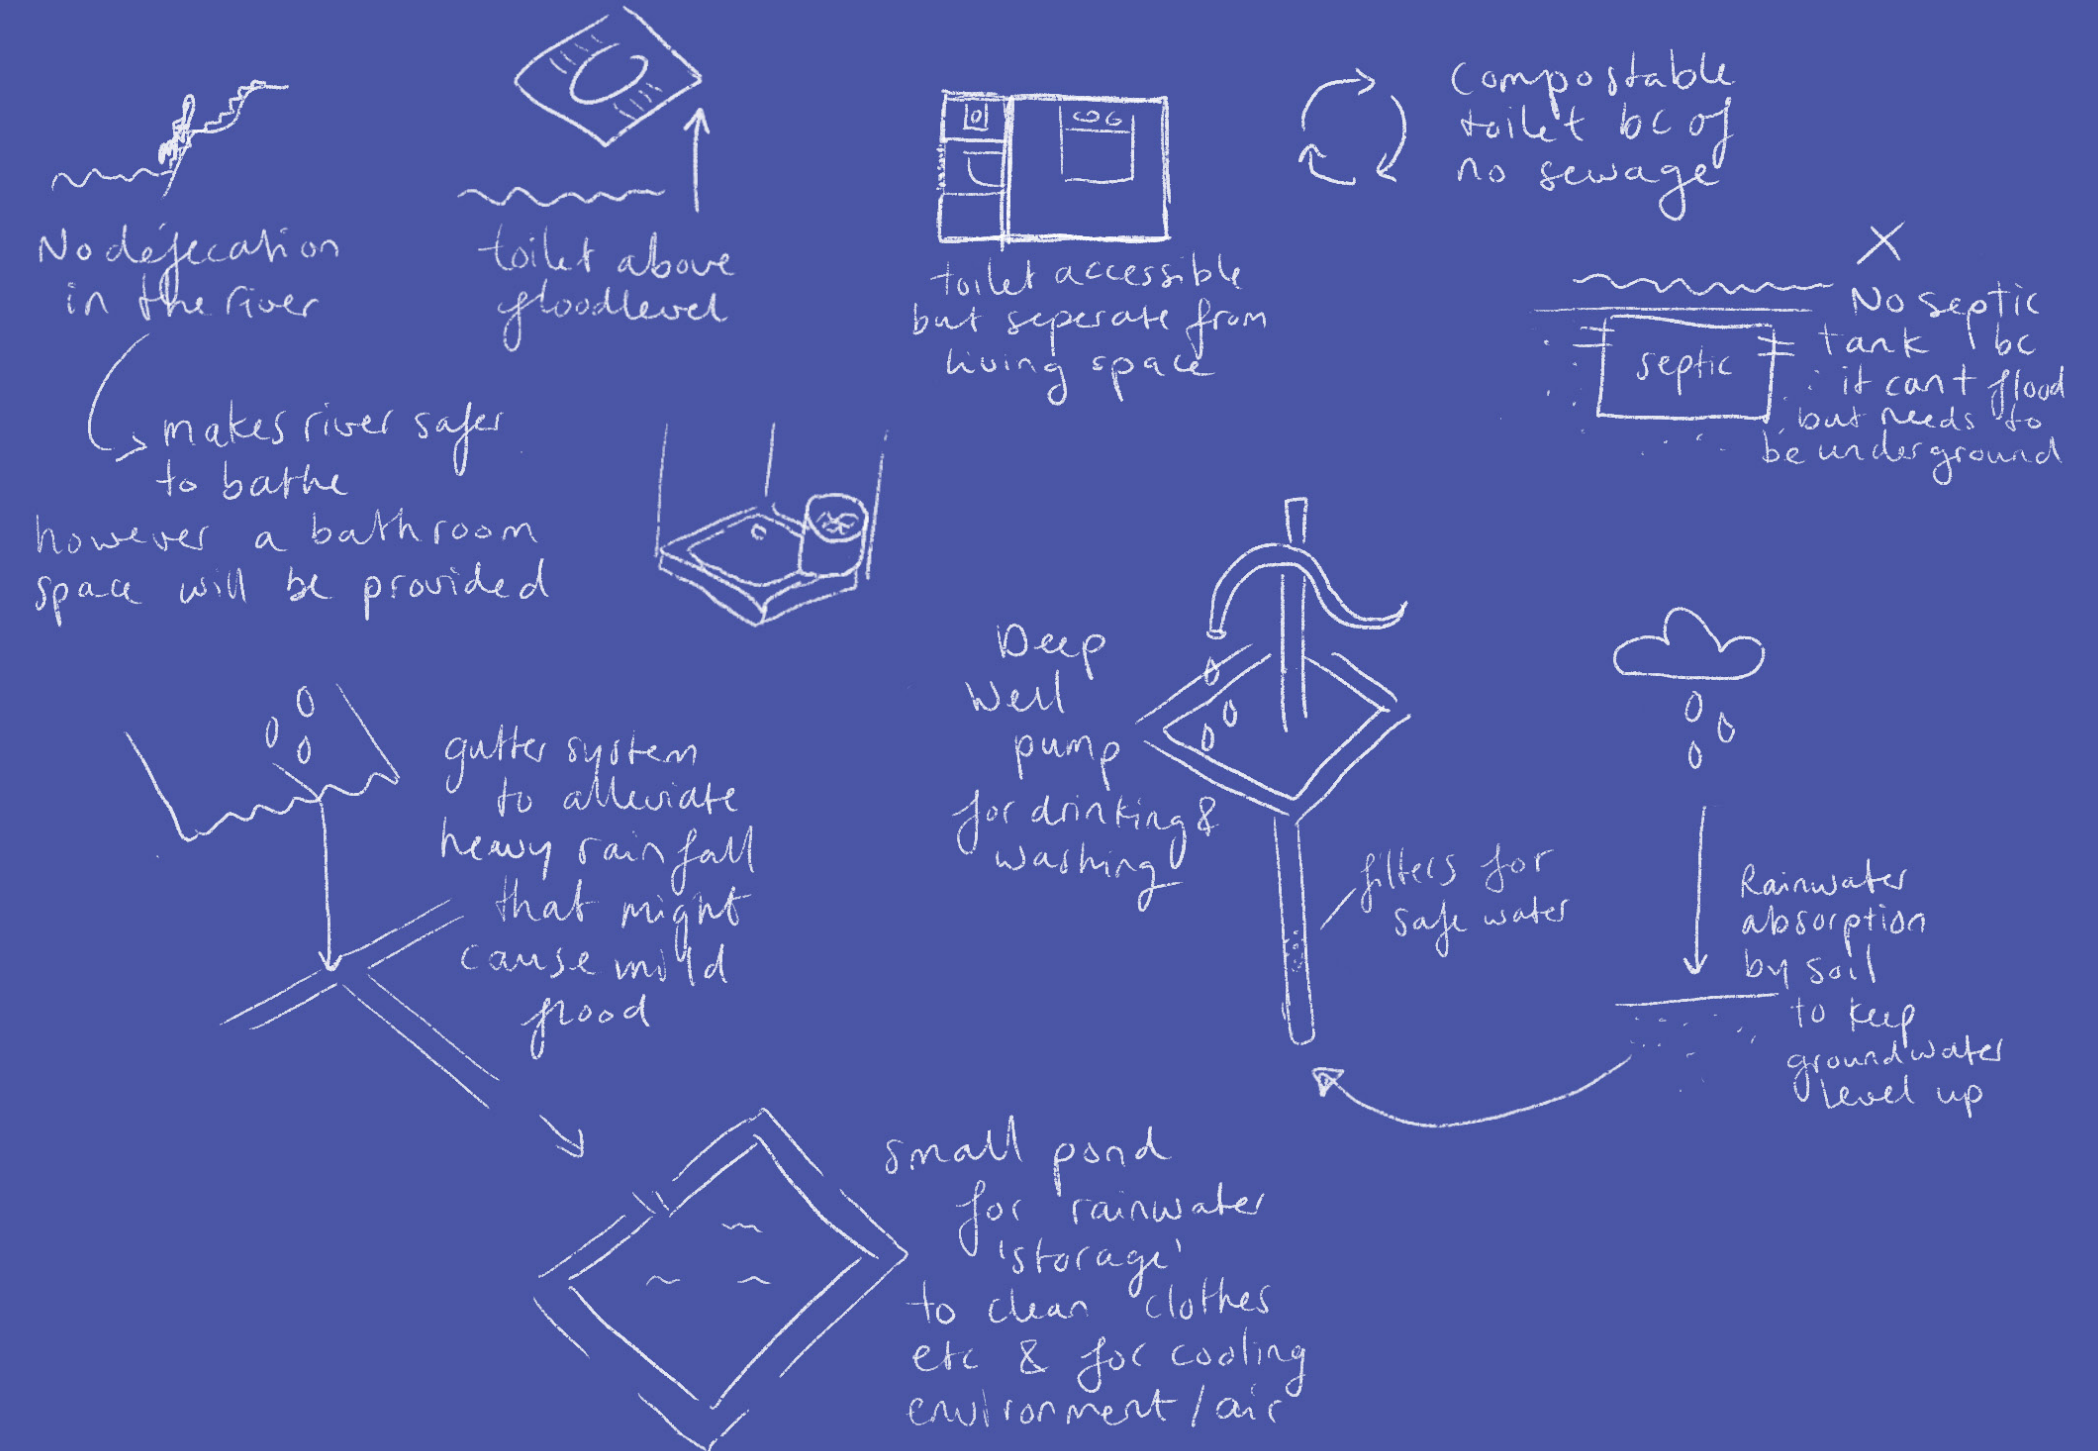 No defecation
in the river
makes river safer
to bathe
however a bathroom
space will be provided
toilet above
floodlevel
toilet accessible
but seperate from
living space
compostable
toilet bc of
no sewage
X
No septic
tank bc
it cant flood
but needs to
be underground
septic
gutter system
to alleviate
heavy rainfall
that might
cause mild
flood
Deep
Well
pump
for drinking &
washing
filters for
safe water
Rainwater
absorption
by soil
to keep
groundwater
level up
small pond
for rainwater
'storage'
to clean clothes
etc & for cooling
environment / air